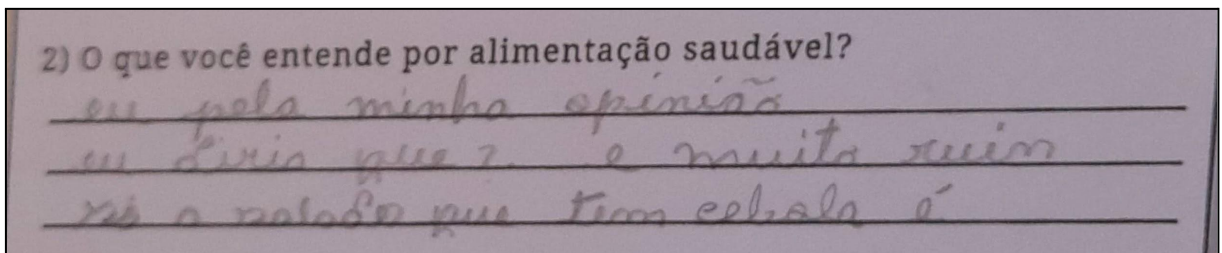 2) O que você entende por alimentação saudável?
eu pela minha opinião
eu diria que é muito ruim
a salada que tem cebola é